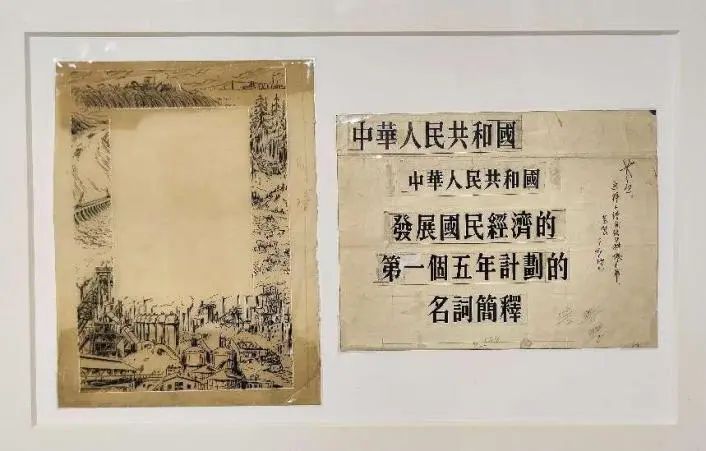 中華人民共和國
中華人民共和國
發展國民經濟的
第一個五年計劃的
名詞簡釋